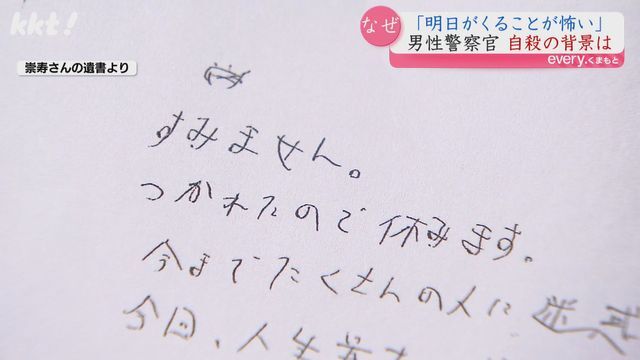 kkt!
なぜ
「明日がくることが怖い」
男性警察官 自殺の背景は
every.くまもと
崇寿さんの遺書より
すみません。
つかれたので休みます。
今までたくさんの人に
今回、人生